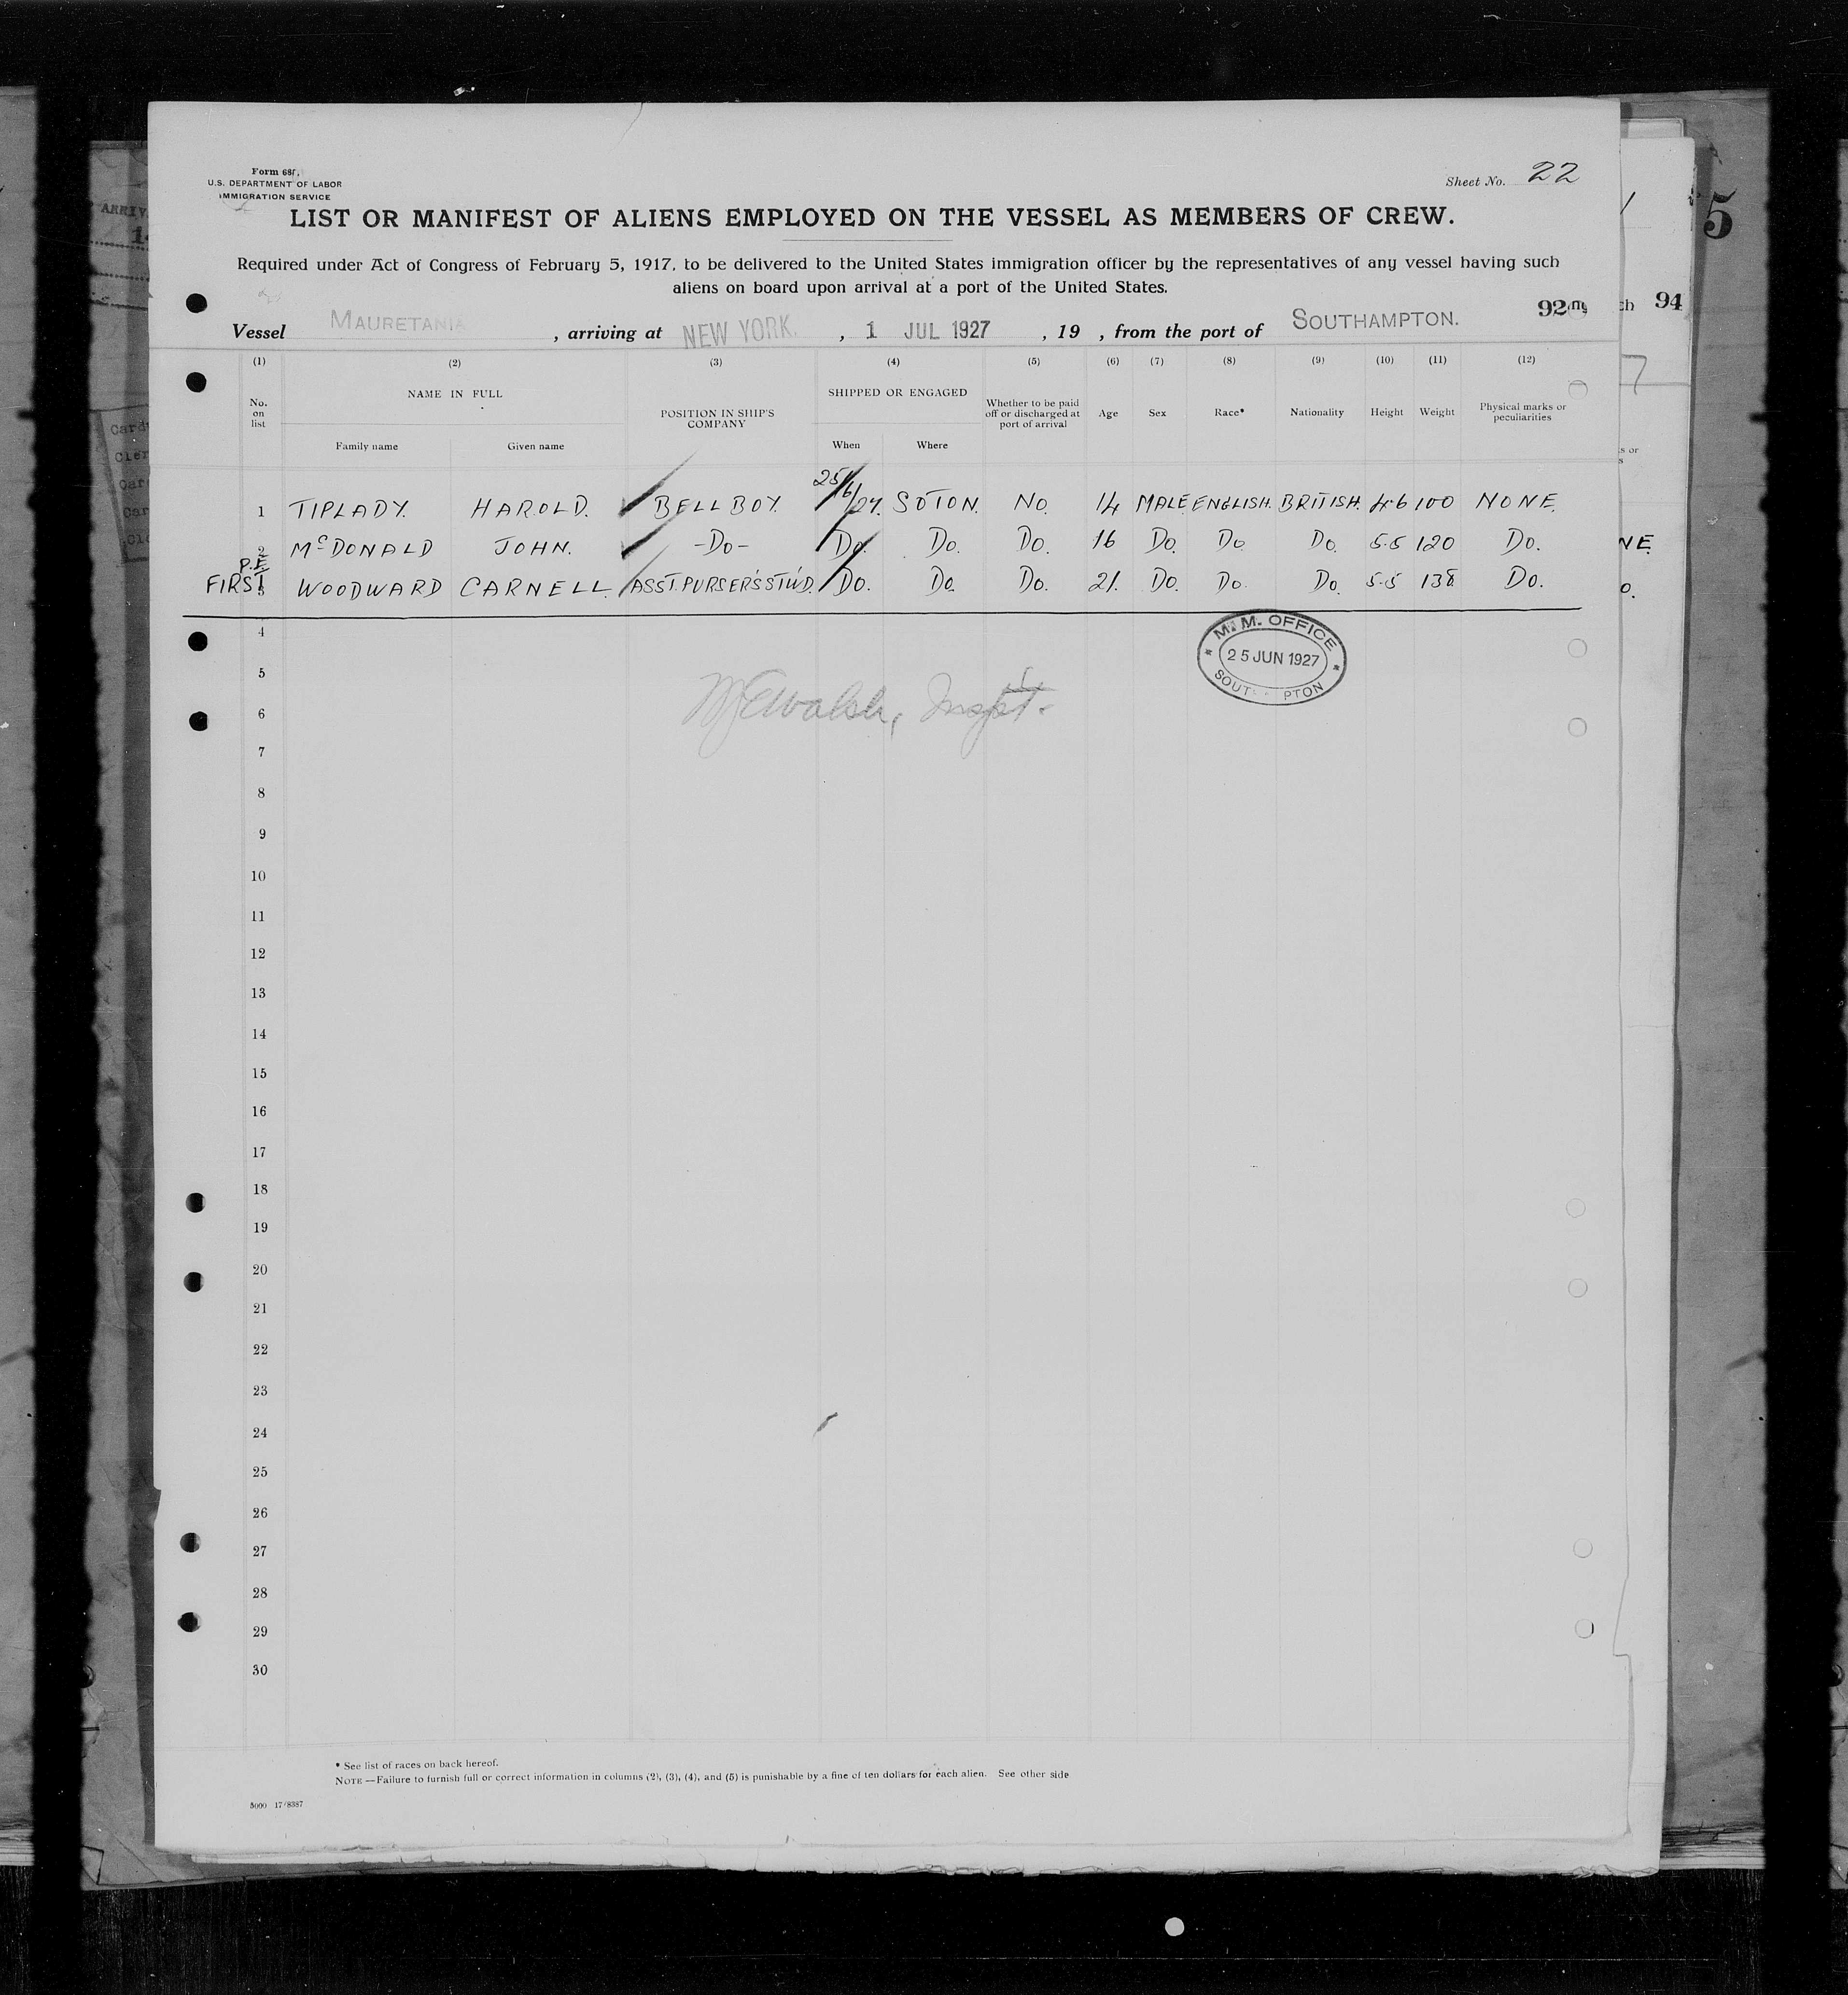 Form 68
U.S. DEPARTMENT OF LABOR
IMMIGRATION SERVICE
Sheet No. 22
LIST OR MANIFEST OF ALIENS EMPLOYED ON THE VESSEL AS MEMBERS OF CREW.
Required under Act of Congress of February 5, 1917, to be delivered to the United States immigration officer by the representatives of any vessel having such
aliens on board upon arrival at a port of the United States.
92
94
5
Vessel MAURETANIA, arriving at NEW YORK., 1 JUL 1927, 19 , from the port of SOUTHAMPTON.
(1) (2) (3) (4) (5) (6) (7) (8) (9) (10) (11) (12)
No. on list NAME IN FULL POSITION IN SHIP'S COMPANY SHIPPED OR ENGAGED Whether to be paid off or discharged at port of arrival Age Sex Race* Nationality Height Weight Physical marks or peculiarities
Family name Given name When Where
1 TIPLADY. HAROLD. BELL BOY. 25/6/27. SOTON. NO. 14 MALE ENGLISH. BRITISH. 4.6 100 NONE.
2 McDONALD JOHN. -DO- DO. DO. DO. 16 DO. DO DO. 5.5 120 DO.
P.E.
FIRST 3 WOODWARD CARNELL. ASST. PURSER'S STW'D. DO. DO. DO. 21. DO. DO. DO. 5.5 138 DO.
4
M. M. OFFICE
25 JUN 1927
5
6
7
8
9
10
11
12
13
14
15
16
17
18
19
20
21
22
23
24
25
26
27
28
29
30
* See list of races on back hereof.
NOTE —Failure to furnish full or correct information in columns (2), (3), (4), and (5) is punishable by a fine of ten dollars for each alien. See other side
5000 17/8387